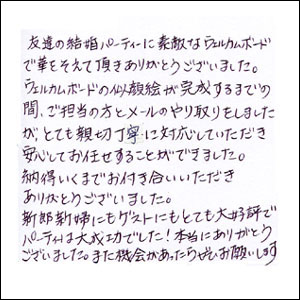 友達の結婚パーティーに素敵なウェルカムボード
で華をそえて頂きありがとうございました。
ウェルカムボードの似顔絵が完成するまでの
間、ご担当の方とメールのやり取りをしました
が、とても親切丁寧に対応していただき
安心してお任せすることができました。
納得いくまでお付き合いいただき
ありがとうございました。
新郎新婦にもゲストにもとても大好評で
パーティは大成功でした!本当にありがとう
ございました。また機会があったらぜひお願いします